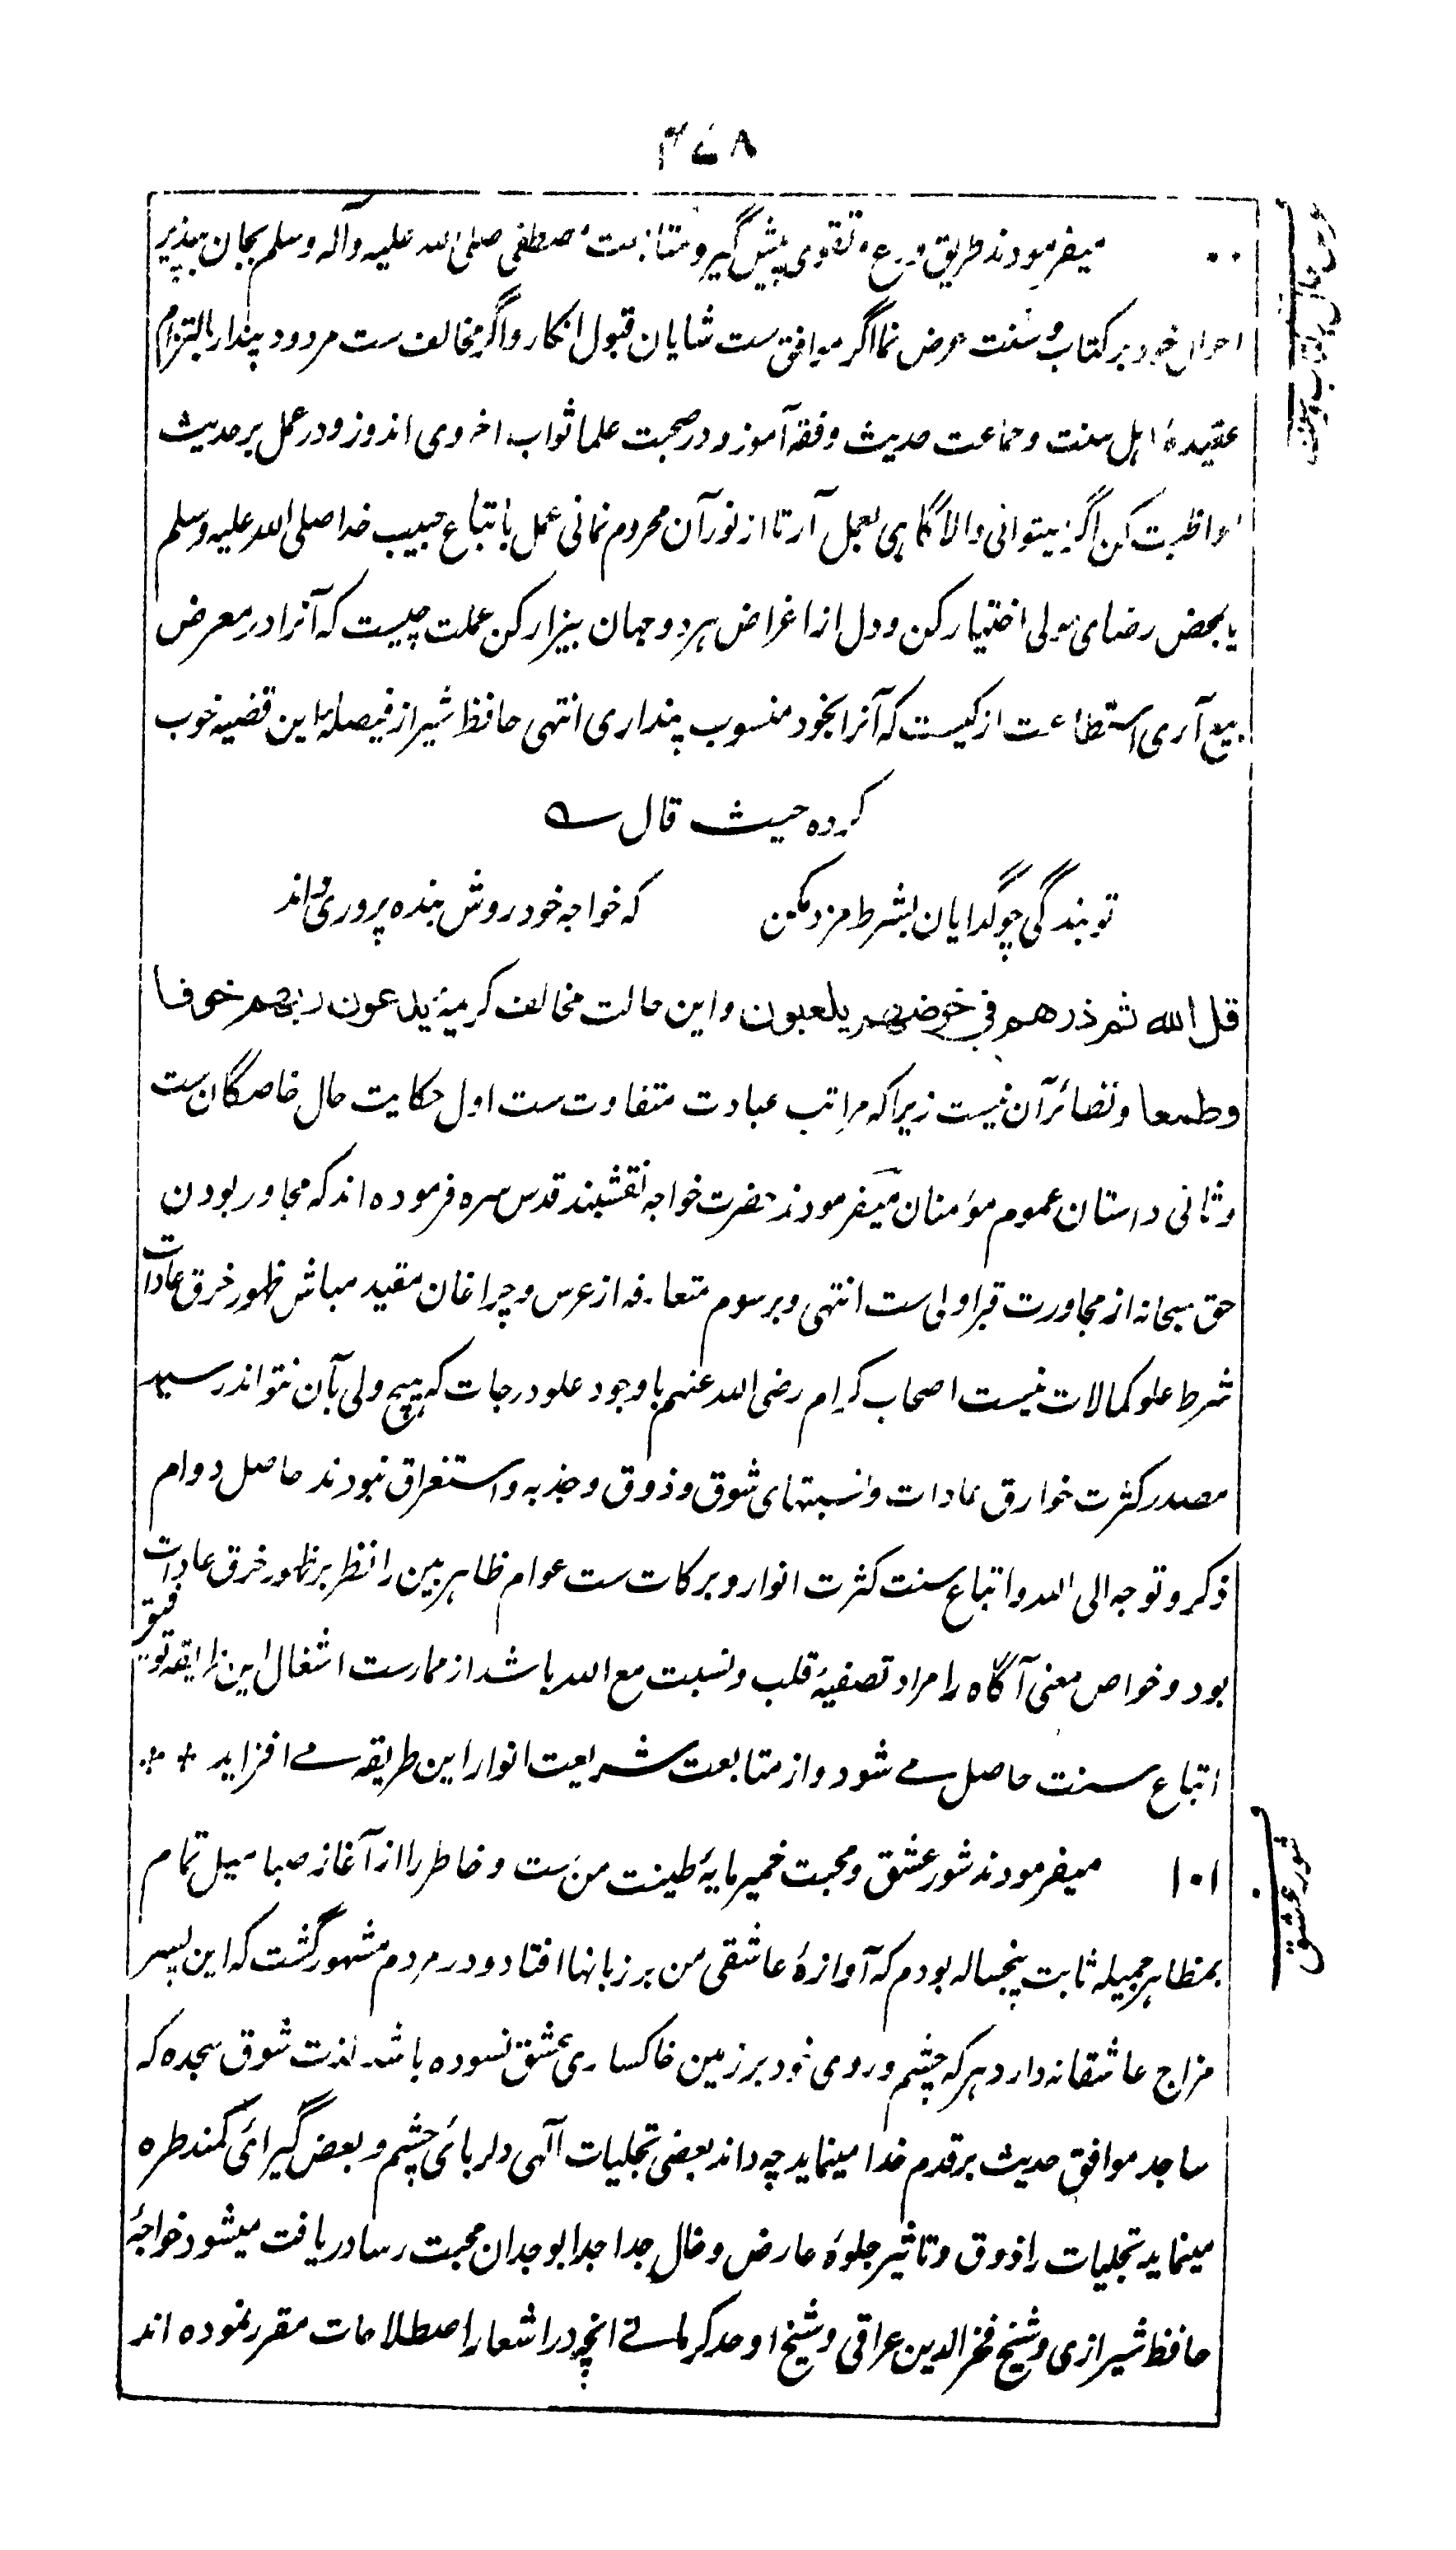 ۴۷۸
میفرمودند طریق ورع و تقوی پیش گیر و متابعت مصطفی صلی الله علیه وآله وسلم بجان بپذیر
احوال خود بر کتاب و سنت عرض نما اگر موافق ست شایان قبول انکار و اگر مخالف ست مردود پندار بالتزام
عقیدهٔ اہل سنت و جماعت حدیث و فقه آموز و در صحبت علما ثواب اخروی اندوز و در عمل بر حدیث
مواظبت کن اگر میتوانی والا گاہی بعمل آر تا از نور آن محروم نمانی عمل باتباع حبیب خدا صلی الله علیه وسلم
یا بمحض رضای مولی اختیار کن و دل از اغراض ہر دو جهان بیزار کن عملت چیست که آنرا در معرض
بیع آری استطاعت از کیست که آنرا بخود منسوب پنداری انتهی حافظ شیراز فیصلهٔ این قضیه خوب
کرده حیث قال ؎
تو بندگی چو گدایان بشرط مزد مکن که خواجه خود روش بنده پروری داند
قل الله ثم ذرهم فی خوضهم یلعبون و این حالت مخالف کریمهٔ یدعون ربهم خوفا
وطمعا و نضائر آن نیست زیرا که مراتب عبادت متفاوت ست اول حکایت حال خاصگان ست
و ثانی داستان عموم مؤمنان میفرمودند حضرت خواجه نقشبند قدس سره فرموده اند که مجاور بودن
حق سبحانه از مجاورت قبر اولی ست انتهی و برسوم متعارفه از عرس و چراغان مقید مباش ظهور خرق عادات
شرط علو کمالات نیست اصحاب کرام رضی الله عنهم باوجود علو درجات که ہیچ ولی بآن نتواند رسید
مصدر کثرت خوارق عادات و نسبتهای شوق و ذوق و جذبه و استغراق نبودند حاصل دوام
ذکر و توجه الی الله و اتباع سنت کثرت انوار و برکات ست عوام ظاہر بین را نظر بر ظهور خرق عادات
بود و خواص معنی آگاه را مراد تصفیهٔ قلب و نسبت مع الله باشد از ممارست اشغال این طریقه توفیق
اتباع سنت حاصل مے شود و از متابعت شریعت انوار این طریقه مے افزاید
۱۰۱ میفرمودند شور عشق و محبت خمیر مایهٔ طینت من ست و خاطر را از آغاز صبا میل تمام
بمظاہر جمیله ثابت پنجساله بودم که آوازهٔ عاشقی من بر زبانها افتاد و در مردم مشهور گشت که این پسر
مزاج عاشقانه دارد ہر که چشم و روی خود بر زمین خاکساری عشق نسوده باشد لذت شوق سجده که
ساجد موافق حدیث بر قدم خدا مینماید چه داند بعضی تجلیات آلهی دلربائی چشم و بعض گیرائی کمند طره
مینماید تجلیات را ذوق و تاثیر جلوهٔ عارض و خال جدا جدا بوجدان محبت رسا دریافت میشود خواجهٔ
حافظ شیرازی و شیخ فخرالدین عراقی و شیخ اوحد کرمانے انچه در اشعار اصطلاحات مقرر نموده اند
شور عشق